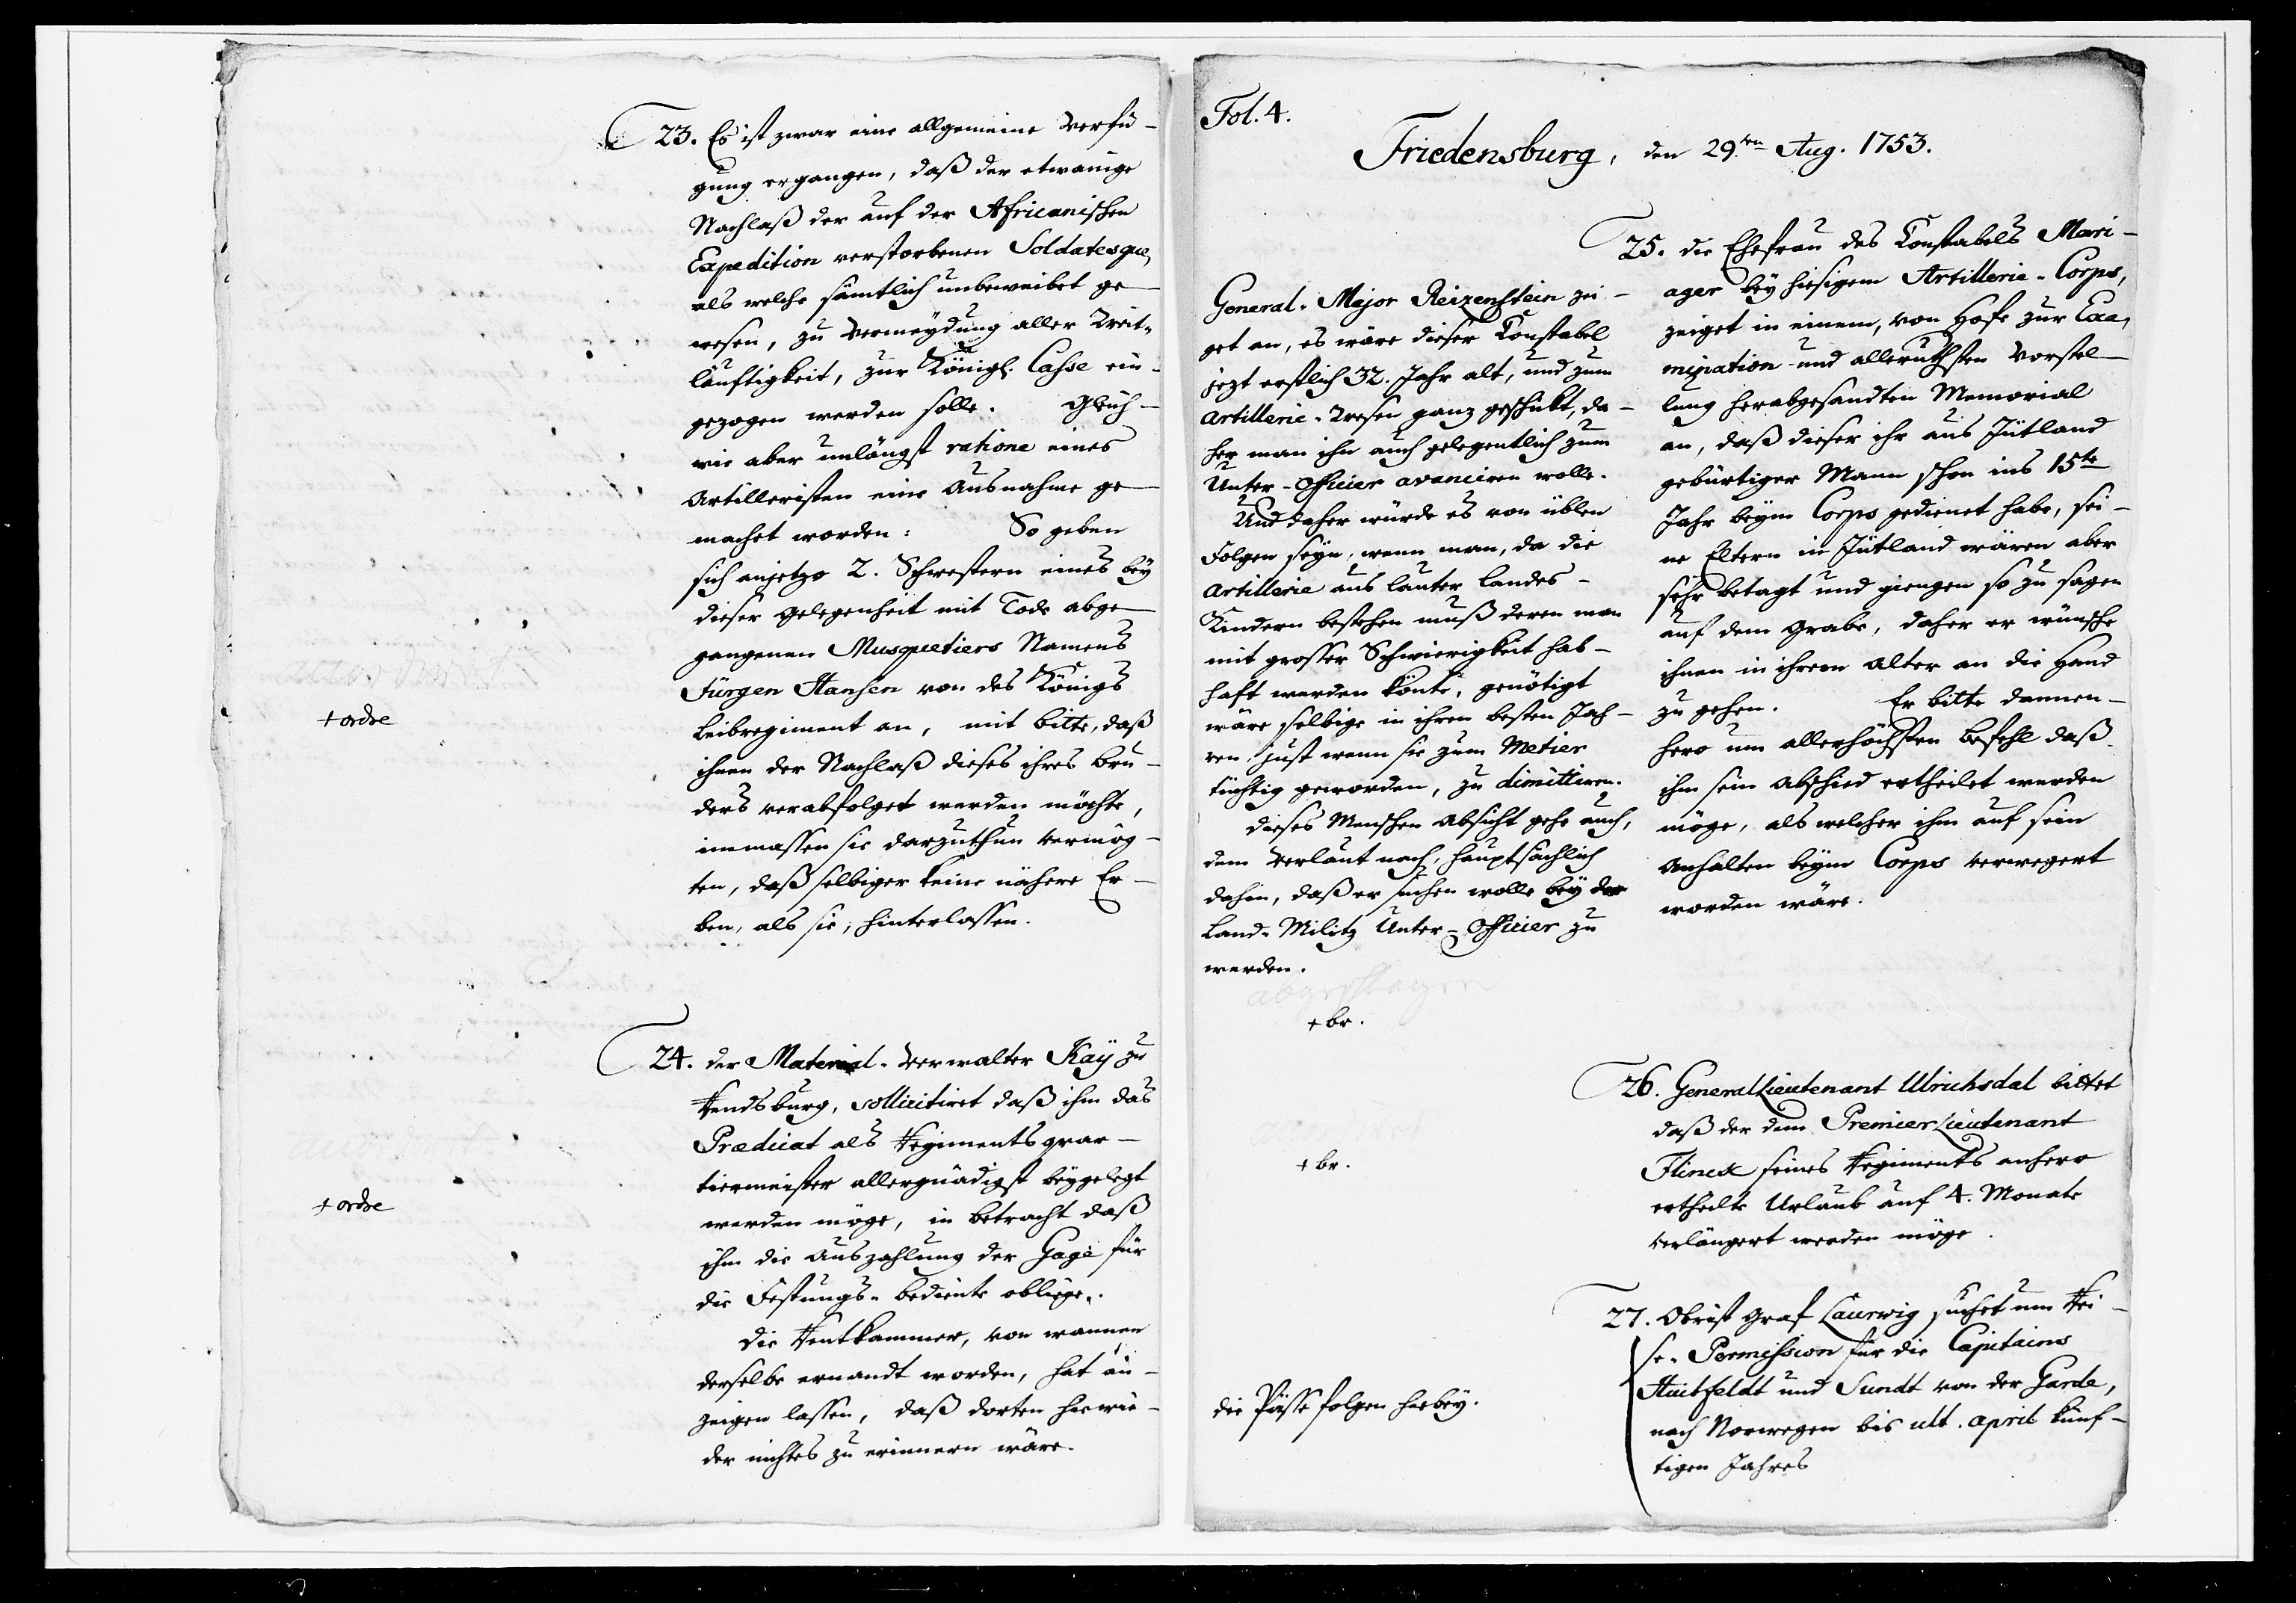 23. Es ist zwar eine allgemeine Verfü-
gung ergangen, daß der etwanige
Nachlaß der auf der Africanischen
Expedition verstorbenen Soldatesque,
als welche sämtlich unbeweibet ge-
wesen, zu Vermeydung aller Weit-
läuftigkeit, zur Königl. Casse ein-
gezogen werden solle. Gleich-
wie aber unlängst ratione eines
Artilleristen eine Ausnahme ge-
machet worden: So geben
sich anjetzo 2. Schwestern eines bey
dieser Gelegenheit mit Tode abge-
gangenen Musquetiers Namens
Jürgen Hansen von des Königs
+ ordre
Leibregiment an, mit bitte, daß
ihnen der Nachlaß dieses ihres Bru-
ders verabfolget werden möchte,
immassen sie darzuthun vermög-
ten, daß selbiger keine nähere Er-
ben, als sie, hinterlassen.
24. der Material-Verwalter Kay zu
Rendsburg, solliicitiret daß ihm das
Prædicat als Regimentsquar-
tiermeister allergnädigst beygelegt
+ ordre
werden möge, in betracht daß
ihm die Auszahlung der Gage für
die Festungs-bediente obliege.
die Rentkammer, von wannen
derselbe ernandt worden, hat an-
zeigen lassen, daß dorten hiewie-
der nichtes zu erinnern wäre.
Fol. 4.
Friedensburg, den 29.ten Aug. 1753.
25. die Ehefrau des Constabels Mari-
ager bey hiesigem Artillerie-Corps,
zeiget in einem, von Hofe zur Exa-
mination und alleruthsten Vorstel-
lung herabgesandten Memorial
an, daß dieser ihr aus Jütland
gebürtiger Mann schon ins 15te
Jahr beym Corps gedienet habe, sei-
ne Eltern in Jütland wären aber
sehr betagt und giengen so zu sagen
auf dem Grabe, daher er wünsche
ihnen in ihrem Alter an die Hand
zu gehen. Er bitte dannen-
hero um allerhöchsten Befehl daß
ihm sein Abschied ertheilet werden
möge, als welcher ihm auf sein
Anhalten beym Corps verwegert
worden wäre.
General-Major Reizenstein zei-
get an, es wäre dieser Constabel
jezt erstlich 32. Jahr alt, und zum
Artillerie-Wesen ganz geschickt, da-
her man ihn auch gelegentlich zum
Unter-Officier avanciren wolle.
Und daher würde es von üblen
Folgen seyn, wenn man, da die
Artillerie aus lauter Landes-
Kindern bestehen muß deren man
mit grosser Schwierigkeit hab-
haft werden könte, genötigt
wäre selbige in ihren besten Jah-
ren, just wenn sie zum Metier
tüchtig geworden, zu dimittiren.
dieses Menschen Absicht gehe auch,
dem Verlaut nach, hauptsächlich
dahin, daß er suchen wolle bey der
Land-Militz Unter-Officier zu
werden.
abgeschlagen
+ br.
26. General Lieutenant Ulrichsdal bittet
daß der dem Premier Lieutenant
+ br.
Flinck seines Regiments anhero
ertheilte Urlaub auf 4. Monate
verlängert werden möge.
27. Obrist Graf Laurwig suchet um Rei-
se-Permission für die Capitains
Huitfeldt und Sundt von der Garde,
die Pässe folgen hiebey.
nach Norwegen bis ult. April künf-
tigen Jahres